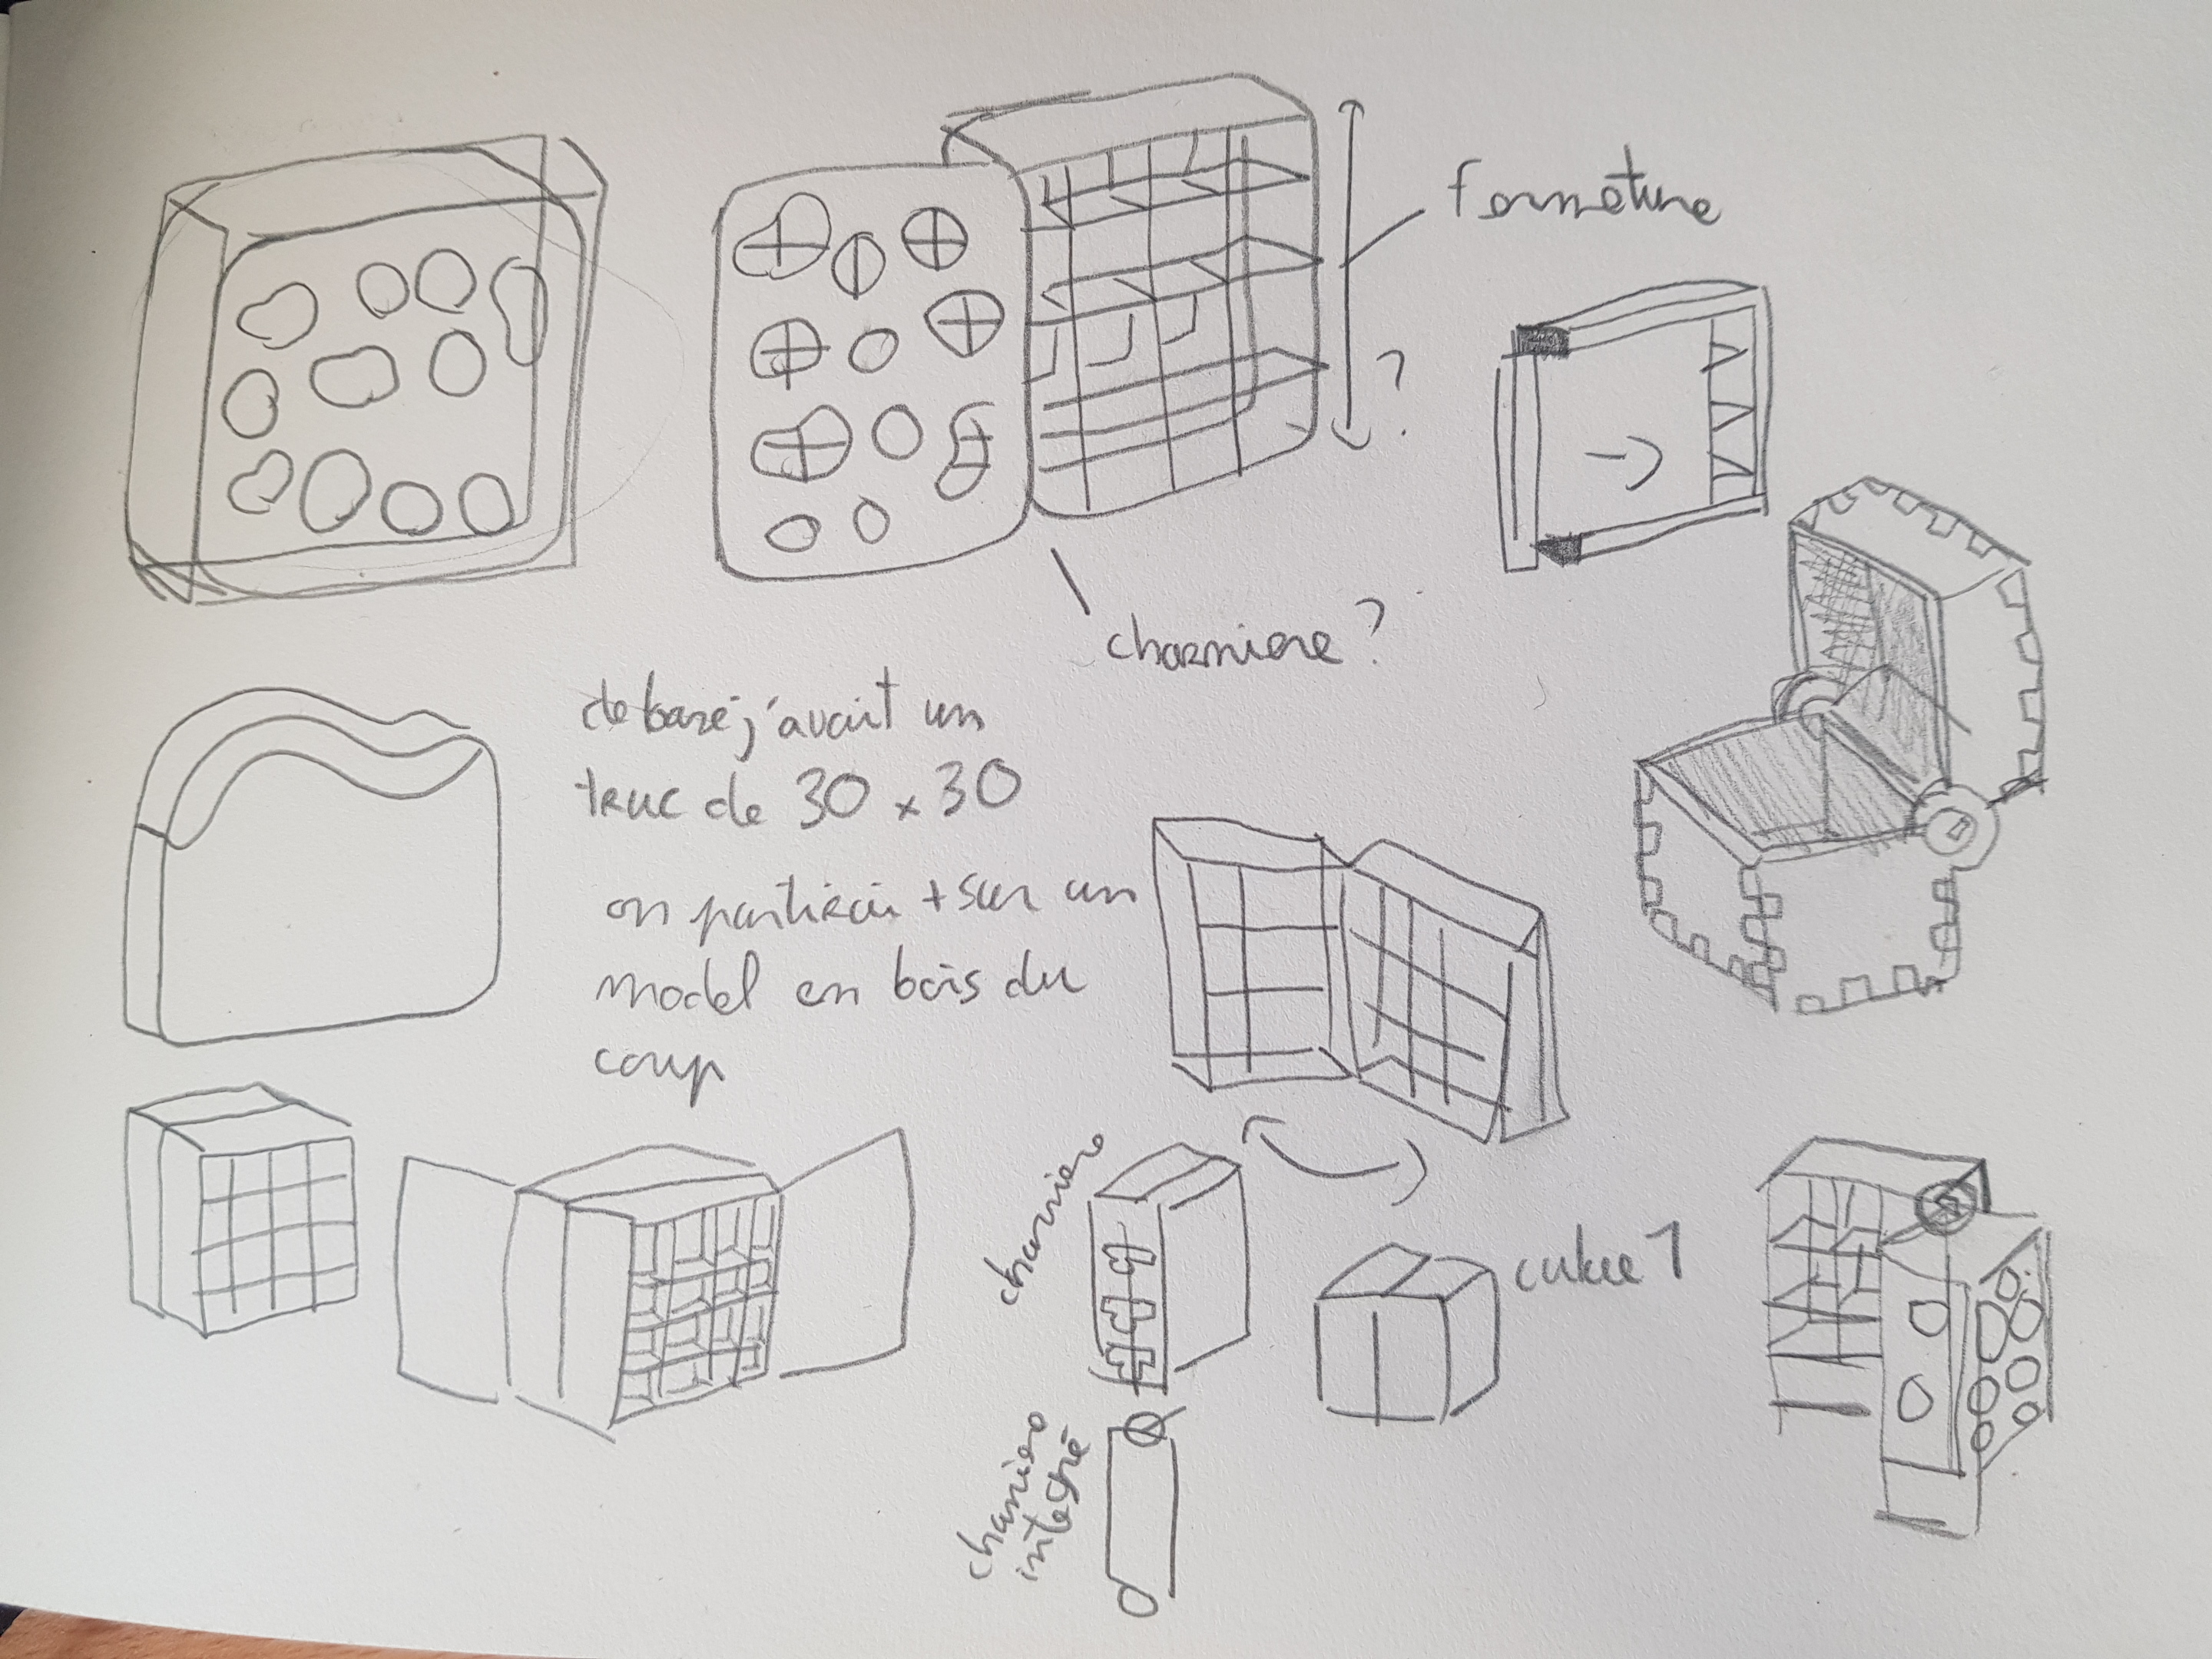 fermeture
?
charniere ?
de base j'avait un
truc de 30 x 30
on partirai + sur un
model en bois du
coup
charniere
cube 1
charniere
intégré